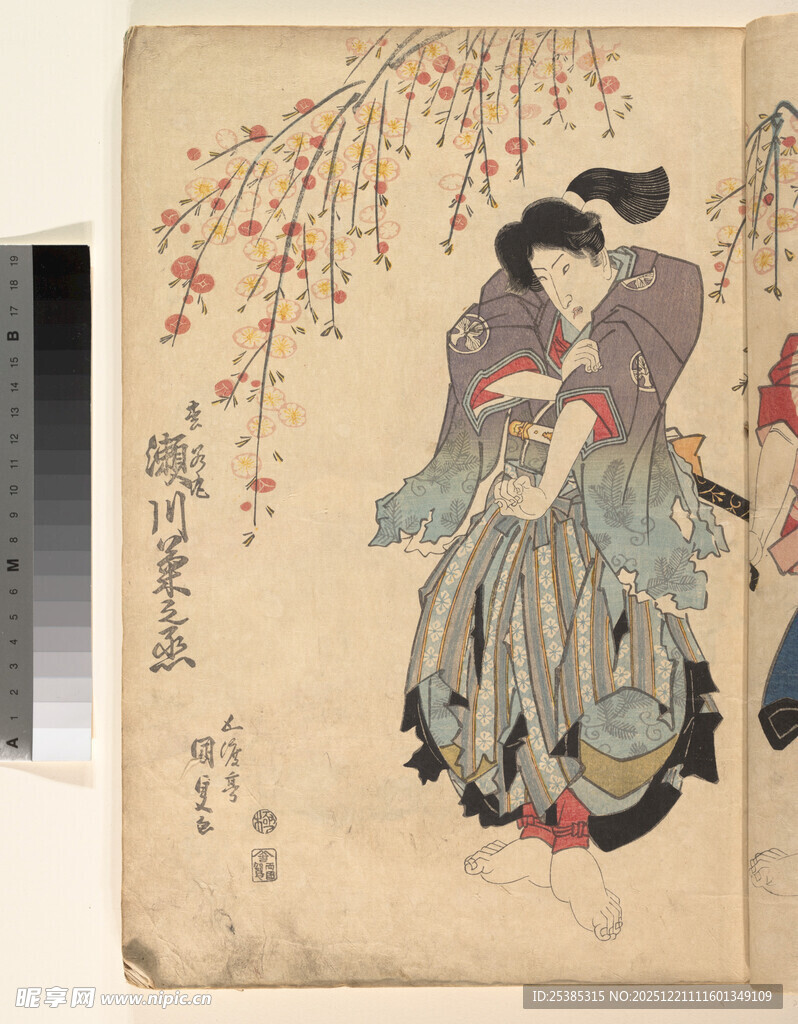 瀬川菊之丞
五渡亭
国貞画
極
19
18
17
B
16
15
14
13
12
11
10
9
8
M
7
6
5
4
3
2
1
A
昵享网 www.nipic.cn
ID:25385315 NO:20251221111601349109